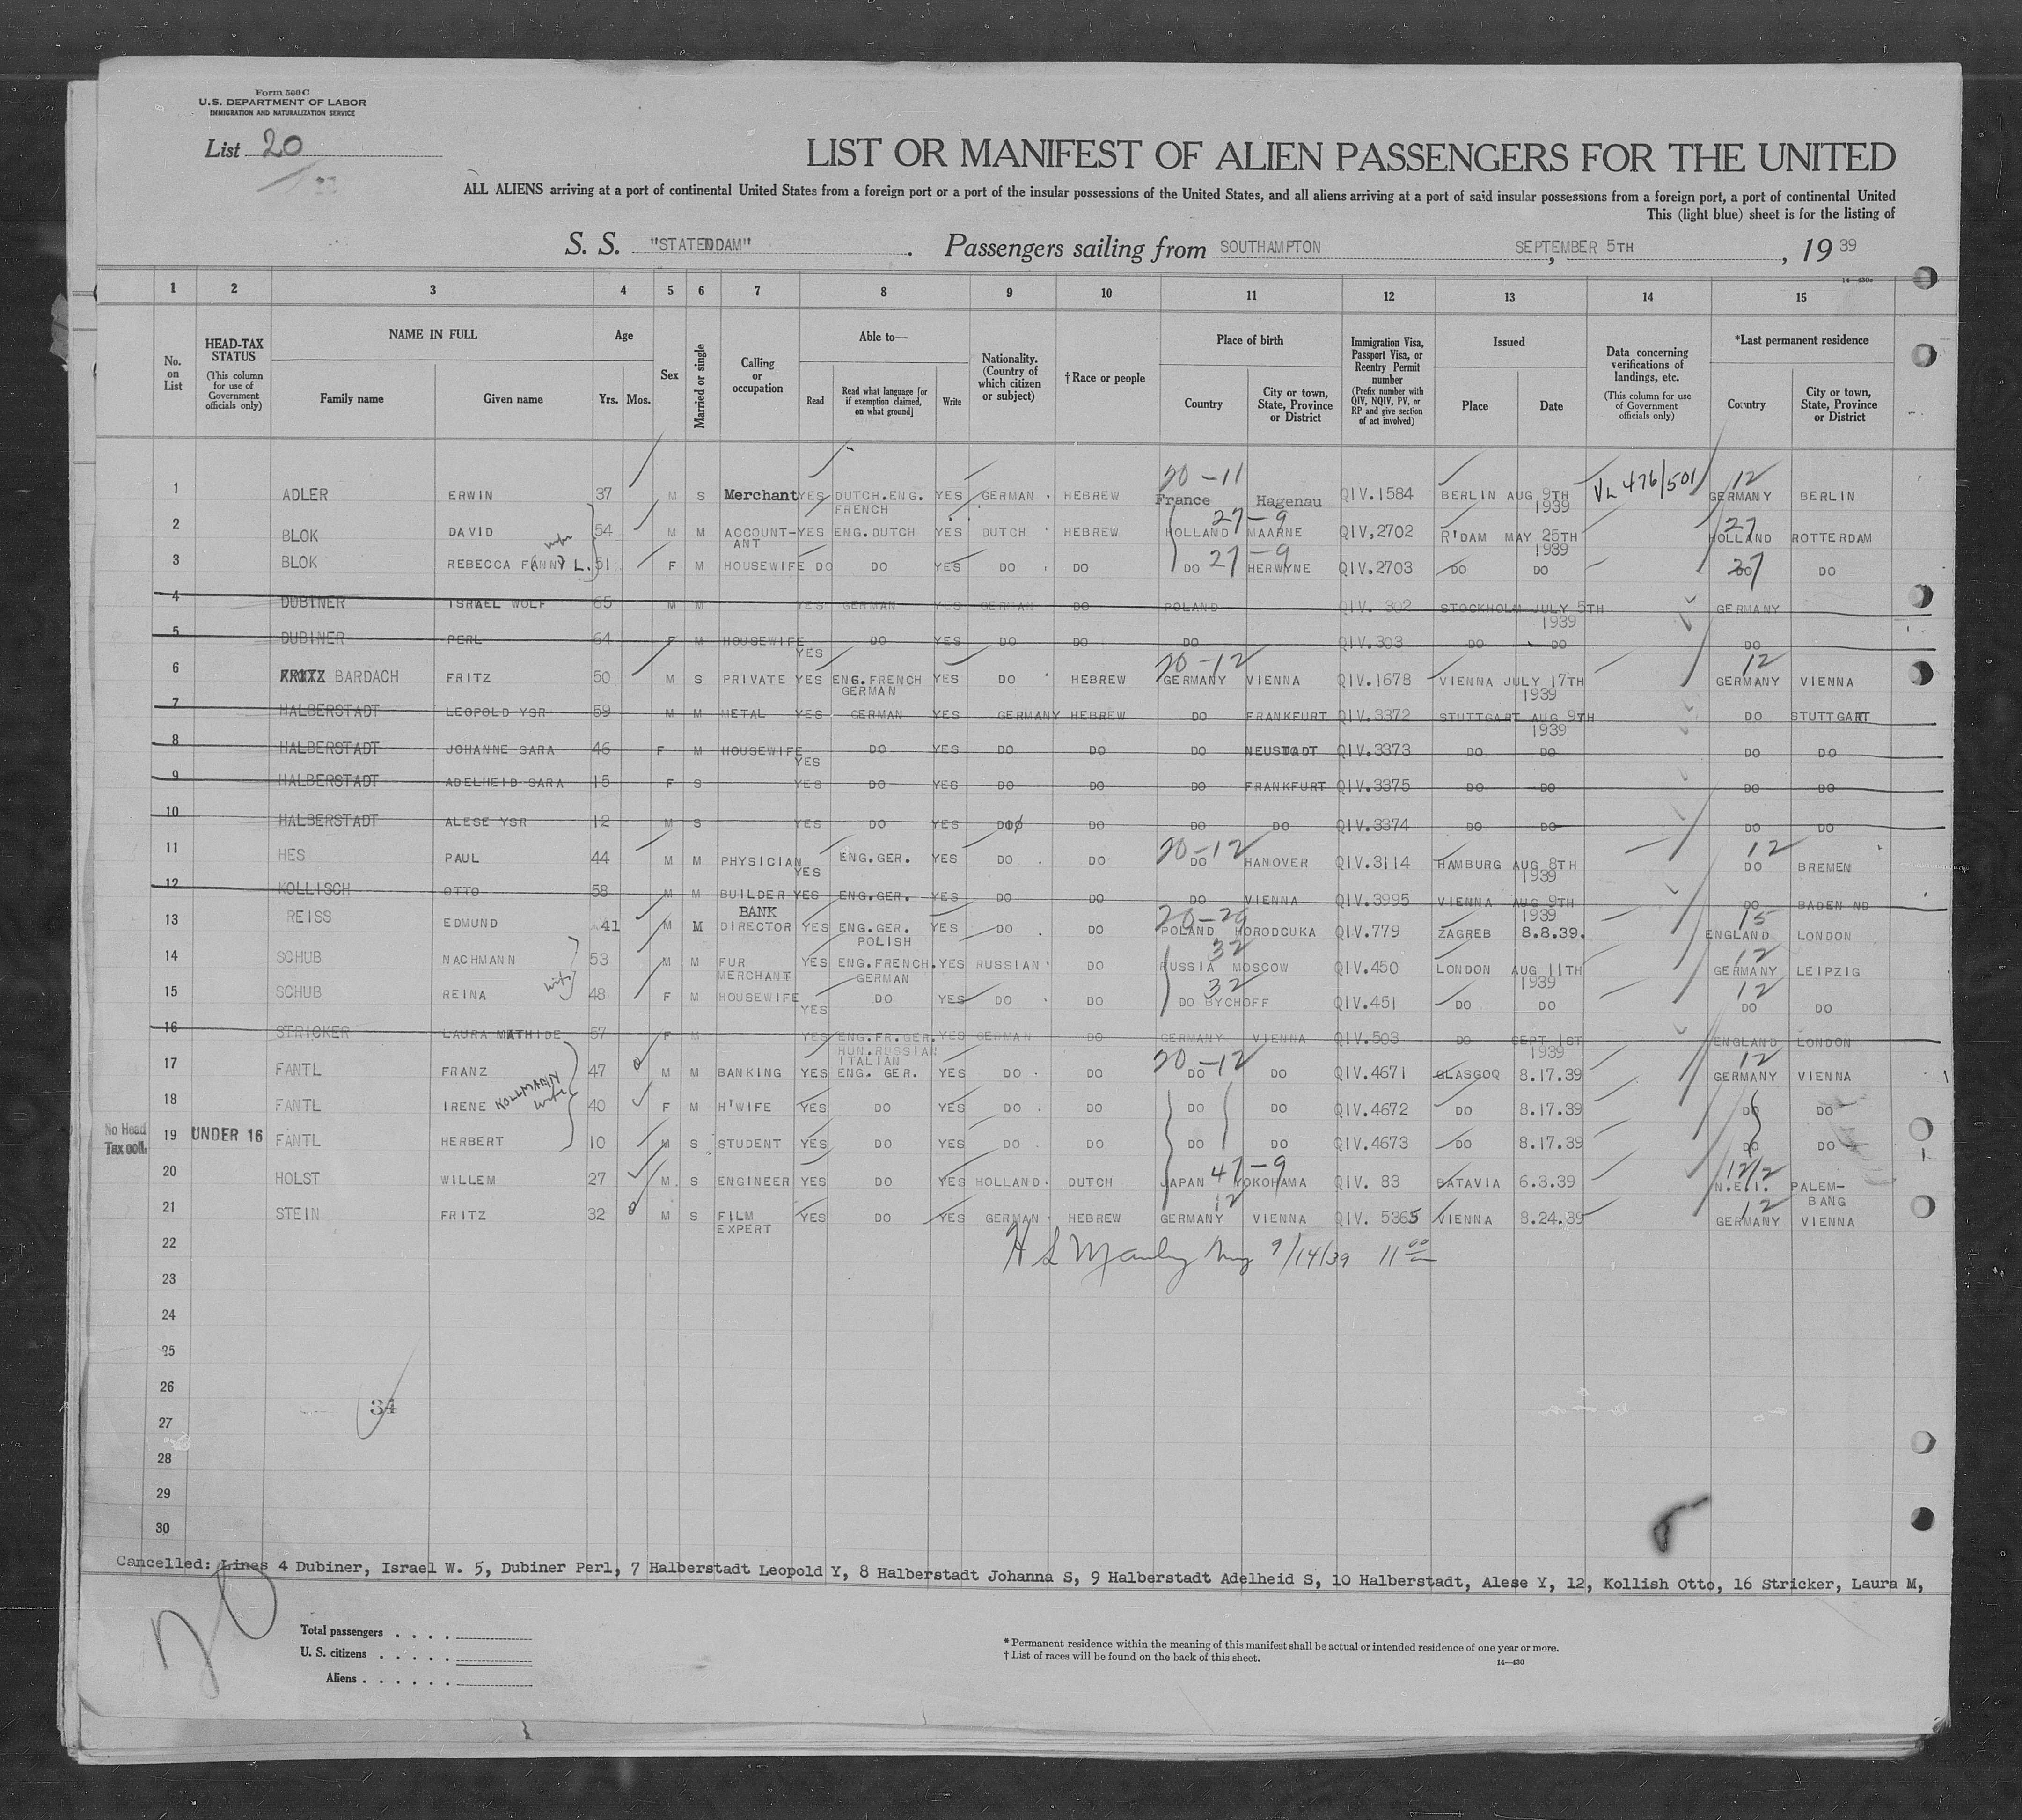 Form 500 C
U.S. DEPARTMENT OF LABOR
IMMIGRATION AND NATURALIZATION SERVICE
List 20
LIST OR MANIFEST OF ALIEN PASSENGERS FOR THE UNITED
ALL ALIENS arriving at a port of continental United States from a foreign port or a port of the insular possessions of the United States, and all aliens arriving at a port of said insular possessions from a foreign port, a port of continental United
This (light blue) sheet is for the listing of
S. S. "STATENDAM". Passengers sailing from SOUTHAMPTON, SEPTEMBER 5TH, 19 39
1 2 3 4 5 6 7 8 9 10 11 12 13 14 15
No. on List
HEAD-TAX STATUS (This column for use of Government officials only)
NAME IN FULL Family name Given name
Age Yrs. Mos.
Sex
Married or single
Calling or occupation
Able to— Read Read what language [or if exemption claimed, on what ground] Write
Nationality. (Country of which citizen or subject)
†Race or people
Place of birth Country City or town, State, Province or District
Immigration Visa, Passport Visa, or Reentry Permit number (Prefix number with QIV, NQIV, PV, or RP and give section of act involved)
Issued Place Date
Data concerning verifications of landings, etc. (This column for use of Government officials only)
*Last permanent residence Country City or town, State, Province or District
20-11 12
1 ADLER ERWIN 37 M S Merchant YES DUTCH.ENG. FRENCH YES GERMAN HEBREW France Hagenau QIV.1584 BERLIN AUG 9TH 1939 VL 476/501 GERMANY BERLIN
27-9 27
2 BLOK DAVID 54 M M ACCOUNTANT YES ENG.DUTCH YES DUTCH HEBREW HOLLAND MAARNE QIV,2702 R'DAM MAY 25TH 1939 HOLLAND ROTTERDAM
wife 27-9 27
3 BLOK REBECCA FANNY L. 51 F M HOUSEWIFE DO DO YES DO DO DO HERWYNE QIV.2703 DO DO DO DO
4 DUBINER ISRAEL WOLF 65 M M YES GERMAN YES GERMAN DO POLAND QIV. 302 STOCKHOLM JULY 5TH 1939 GERMANY
5 DUBINER PERL 64 F M HOUSEWIFE YES DO YES DO DO DO QIV.303 DO DO DO
20-12 12
6 BARDACH FRITZ 50 M S PRIVATE YES ENG.FRENCH GERMAN YES DO HEBREW GERMANY VIENNA QIV.1678 VIENNA JULY 17TH 1939 GERMANY VIENNA
7 HALBERSTADT LEOPOLD YSR 59 M M METAL YES GERMAN YES GERMANY HEBREW DO FRANKFURT QIV.3372 STUTTGART AUG 9TH 1939 DO STUTTGART
8 HALBERSTADT JOHANNE SARA 46 F M HOUSEWIFE YES DO YES DO DO DO NEUSTADT QIV.3373 DO DO DO DO
9 HALBERSTADT ADELHEID SARA 15 F S YES DO YES DO DO DO FRANKFURT QIV.3375 DO DO DO DO
10 HALBERSTADT ALESE YSR 12 M S YES DO YES DO DO DO DO QIV.3374 DO DO DO DO
20-12 12
11 HES PAUL 44 M M PHYSICIAN YES ENG.GER. YES DO DO DO HANOVER QIV.3114 HAMBURG AUG 8TH 1939 DO BREMEN
12 KOLLISCH OTTO 58 M M BUILDER YES ENG.GER. YES DO DO DO VIENNA QIV.3995 VIENNA AUG 9TH 1939 DO BADEN ND
15
13 REISS EDMUND 41 M M BANK DIRECTOR YES ENG.GER. POLISH YES DO DO POLAND HORODCUKA QIV.779 ZAGREB 8.8.39. ENGLAND LONDON
32 12
14 SCHUB NACHMANN 53 M M FUR MERCHANT YES ENG.FRENCH. GERMAN YES RUSSIAN DO RUSSIA MOSCOW QIV.450 LONDON AUG 11TH 1939 GERMANY LEIPZIG
wife 32 12
15 SCHUB REINA 48 F M HOUSEWIFE YES DO YES DO DO DO BYCHOFF QIV.451 DO DO DO DO
16 STRICKER LAURA MATHIDE 57 F M YES ENG.FR.GER. HUN.RUSSIAN ITALIAN YES GERMAN DO GERMANY VIENNA QIV.503 DO SEPT 1ST 1939 ENGLAND LONDON
20-12 12
17 FANTL FRANZ 47 M M BANKING YES ENG. GER. YES DO DO DO DO QIV.4671 GLASGOQ 8.17.39 GERMANY VIENNA
18 FANTL IRENE KOLLMANN wife 40 F M H'WIFE YES DO YES DO DO DO DO QIV.4672 DO 8.17.39 DO DO
No Head Tax coll. 19 UNDER 16 FANTL HERBERT 10 M S STUDENT YES DO YES DO DO DO DO QIV.4673 DO 8.17.39 DO DO
47-9
20 HOLST WILLEM 27 M S ENGINEER YES DO YES HOLLAND DUTCH JAPAN YOKOHAMA QIV. 83 BATAVIA 6.3.39 N.E.I. PALEMBANG
12 12
21 STEIN FRITZ 32 M S FILM EXPERT YES DO YES GERMAN HEBREW GERMANY VIENNA QIV. 5365 VIENNA 8.24.39 GERMANY VIENNA
22 9/14/39 11 00
23
24
25
26
34
27
28
29
30
Cancelled: Lines 4 Dubiner, Israel W. 5, Dubiner Perl, 7 Halberstadt Leopold Y, 8 Halberstadt Johanna S, 9 Halberstadt Adelheid S, 10 Halberstadt, Alese Y, 12, Kollish Otto, 16 Stricker, Laura M,
20
Total passengers . . . .
U. S. citizens . . . . .
Aliens . . . . . .
* Permanent residence within the meaning of this manifest shall be actual or intended residence of one year or more.
† List of races will be found on the back of this sheet.
14—430